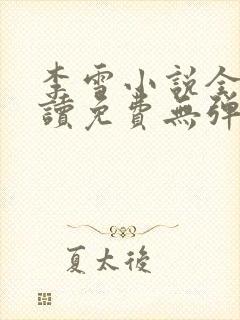 李雪小說全
讀免費無彈
夏太後